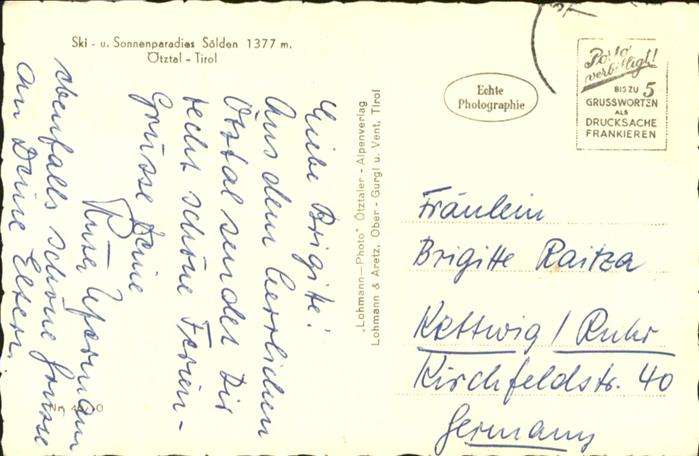 Ski - u. Sonnenparadies Sölden 1377 m.
Ötztal - Tirol
Echte
Photographie
Porto
verbilligt!
BIS ZU 5
GRUSSWORTEN
ALS
DRUCKSACHE
FRANKIEREN
„Lohmann-Photo" Ötztaler - Alpenverlag
Lohmann & Aretz, Ober - Gurgl u. Vent, Tirol
Liebe Brigitte!
Aus dem herrlichen
Ötztal sendet Dir
recht schöne Ferien-
Grüsse Deine
Ruth
ebenfalls schöne Grüsse
an Deine Eltern.
Fräulein
Brigitte Raitza
Kettwig / Ruhr
Kirchfeldstr. 40
Germany